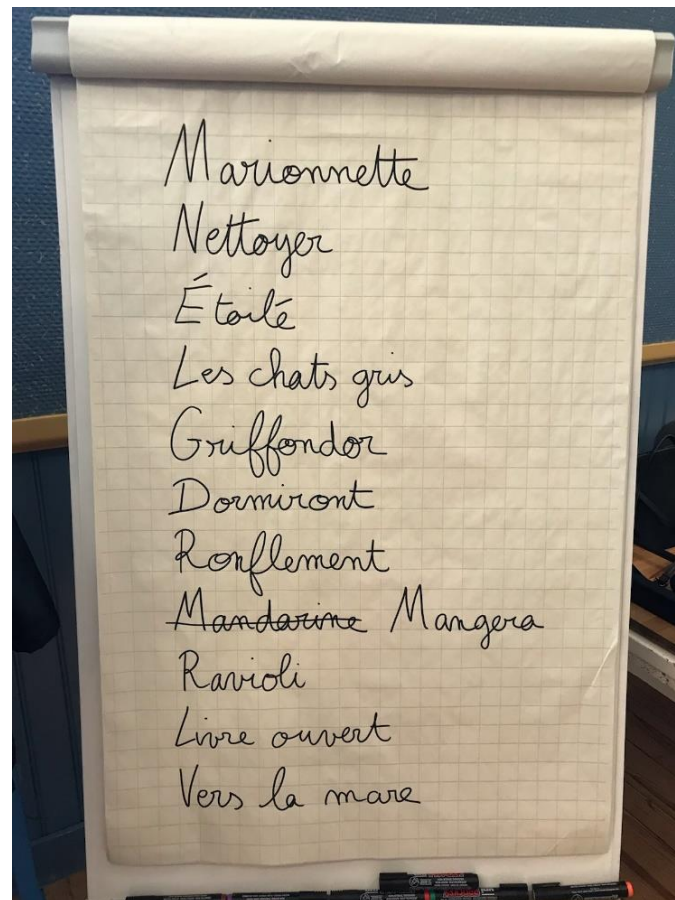 Marionnette
Nettoyer
Étoilé
Les chats gris
Griffondor
Dormiront
Ronflement
Mandarine Mangera
Ravioli
Livre ouvert
Vers la mare